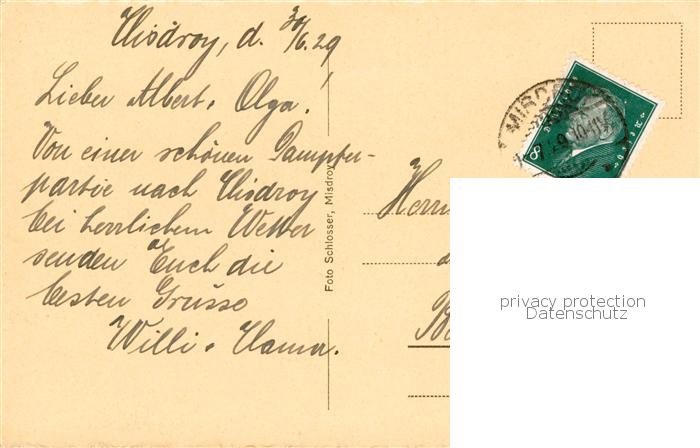 Misdroy, d. 30/6. 29
Lieber Albert u. Olga!
Von einer schönen Dampfer-
partie nach Misdroy
bei herrlichem Wetter
senden Euch die
besten Grüsse
Willi u.
Foto Schlosser, Misdroy
Herrn
8
privacy protection
Datenschutz